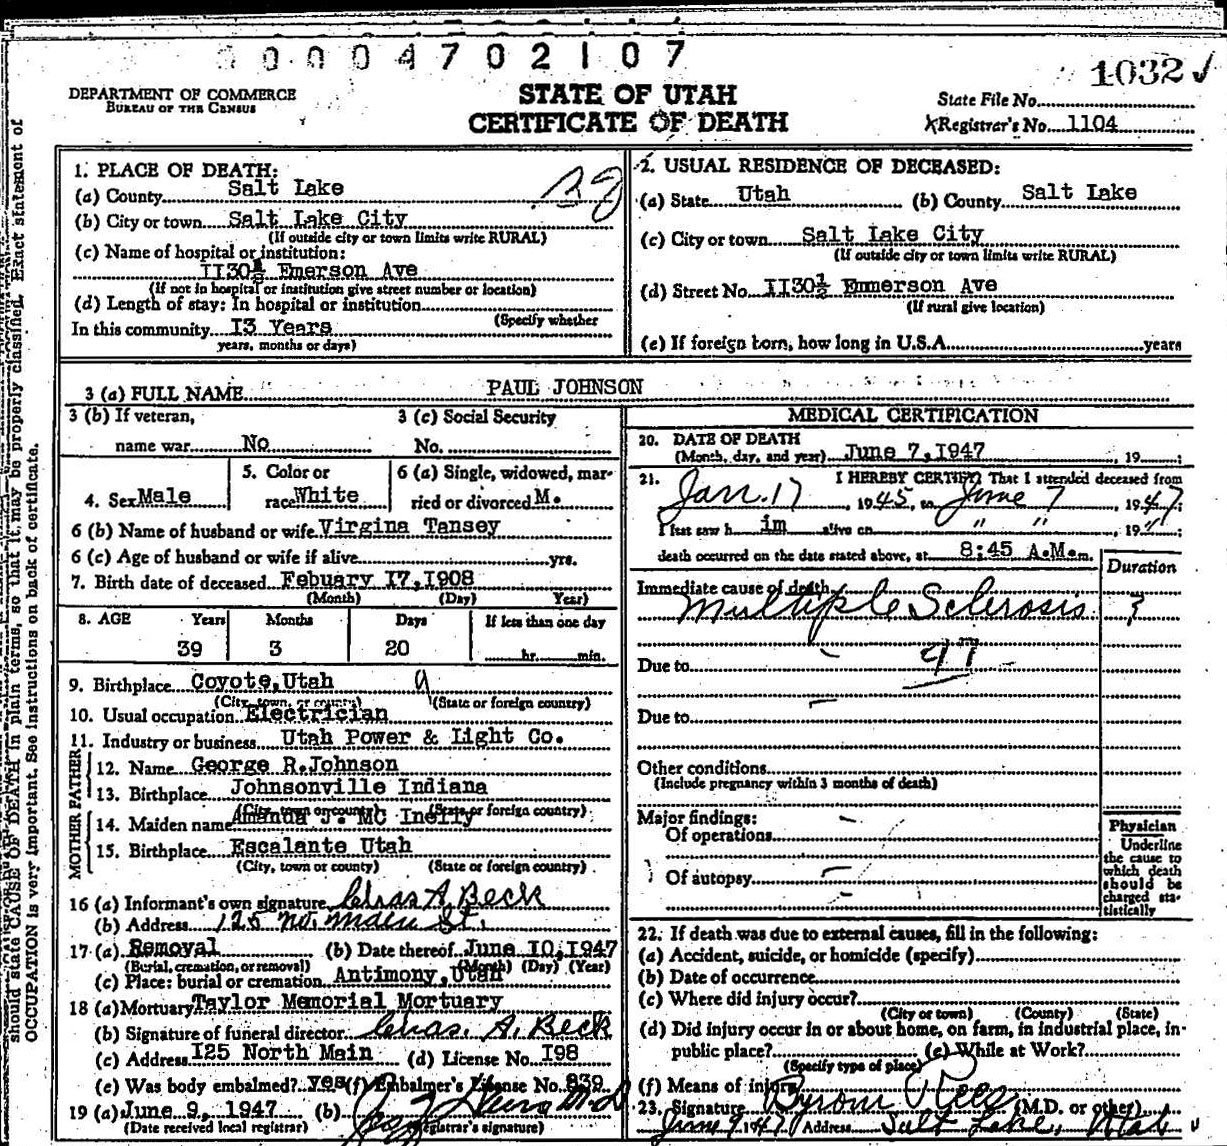 00004702107
1032 ✓
DEPARTMENT OF COMMERCE
BUREAU OF THE CENSUS
STATE OF UTAH
CERTIFICATE OF DEATH
State File No.
Registrar's No. 1104
should state CAUSE OF DEATH in plain terms, so that it may be properly classified. Exact statement of
OCCUPATION is very important. See instructions on back of certificate.
1. PLACE OF DEATH:
(a) County Salt Lake
(b) City or town Salt Lake City
(If outside city or town limits write RURAL)
(c) Name of hospital or institution:
II30½ Emerson Ave
(If not in hospital or institution give street number or location)
(d) Length of stay: In hospital or institution
(Specify whether
In this community I3 Years
years, months or days)
2. USUAL RESIDENCE OF DECEASED:
(a) State Utah (b) County Salt Lake
(c) City or town Salt Lake City
(If outside city or town limits write RURAL)
(d) Street No. II30½ Emmerson Ave
(If rural give location)
(e) If foreign born, how long in U.S.A. years
3 (a) FULL NAME PAUL JOHNSON
3 (b) If veteran, 3 (c) Social Security
name war No No.
4. Sex Male 5. Color or race White 6 (a) Single, widowed, married or divorced M.
6 (b) Name of husband or wife Virgina Tansey
6 (c) Age of husband or wife if alive yrs.
7. Birth date of deceased Febuary I7,I908
(Month) (Day) Year)
8. AGE Years Months Days If less than one day
39 3 20 hr. min.
9. Birthplace Coyote,Utah
(City, town, or county) (State or foreign country)
10. Usual occupation Electrician
11. Industry or business Utah Power & Light Co.
MOTHER FATHER
12. Name George R.Johnson
13. Birthplace Johnsonville Indiana
(City, town or county) (State or foreign country)
14. Maiden name Amanda J. MC Inelly
15. Birthplace Escalante Utah
(City, town or county) (State or foreign country)
16 (a) Informant's own signature Chas A. Beck
(b) Address 125 No. Main St.
17 (a) Removal (b) Date thereof June I0,I947
(Burial, cremation, or removal) (Month) (Day) (Year)
(c) Place: burial or cremation Antimony,Utah
18 (a) Mortuary Taylor Memorial Mortuary
(b) Signature of funeral director Chas. A. Beck
(c) Address I25 North Main (d) License No. I98
(e) Was body embalmed? yes (f) Embalmer's License No. 839
19 (a) June 9, 1947 (b)
(Date received local registrar) (Registrar's signature)
MEDICAL CERTIFICATION
20. DATE OF DEATH
(Month, day, and year) June 7,I947, 19 ;
21. I HEREBY CERTIFY That I attended deceased from
Jan. 17, 1945, to June 7 1947;
I last saw h im alive on " " 19 ";
death occurred on the date stated above, at 8:45 A.M. m.
Duration
Immediate cause of death
Multiple Sclerosis ?
Due to
Due to
Other conditions
(Include pregnancy within 3 months of death)
Major findings:
Of operations
Of autopsy
Physician
Underline
the cause to
which death
should be
charged sta-
tistically
22. If death was due to external causes, fill in the following:
(a) Accident, suicide, or homicide (specify)
(b) Date of occurrence
(c) Where did injury occur?
(City or town) (County) (State)
(d) Did injury occur in or about home, on farm, in industrial place, in-
public place? (e) While at Work?
(Specify type of place)
(f) Means of injury
23. Signature Byron Rees (M.D. or other)
June 9 1947 Address Salt Lake, Utah